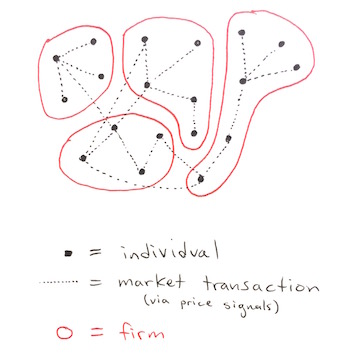 = individual
= market transaction
(via price signals)
= firm